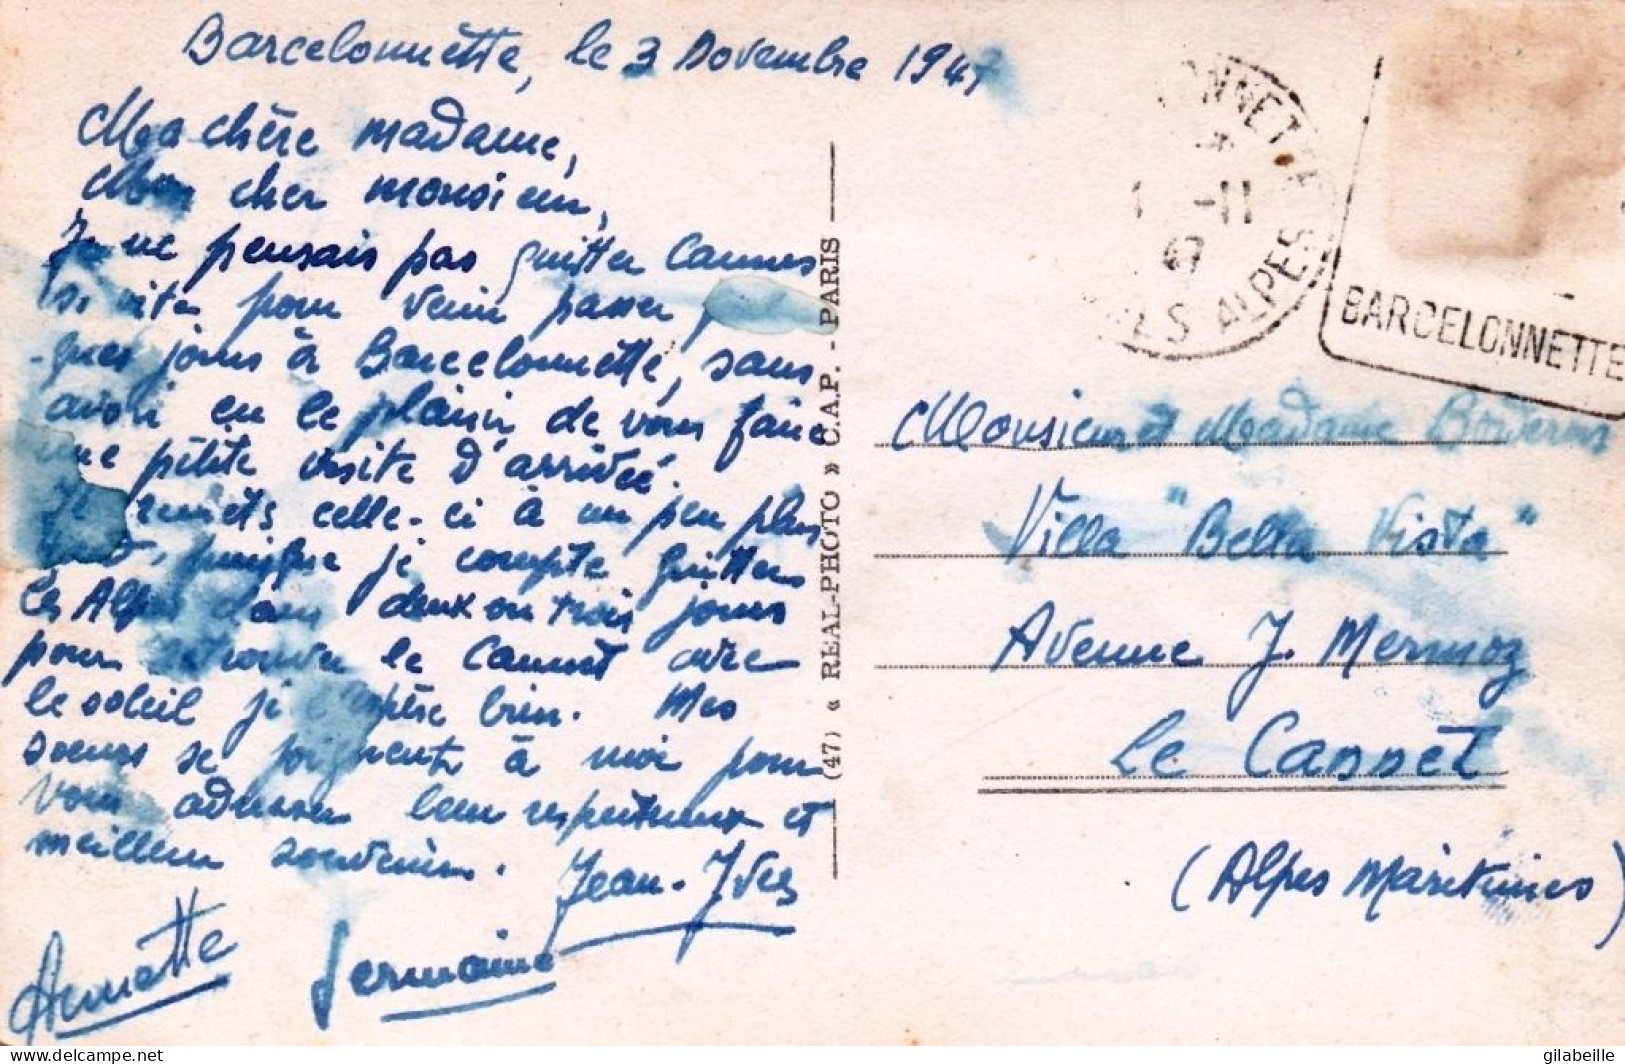 Barcelonnette, le 3 Novembre 1947
Ma chère madame,
Mon cher monsieur,
Je ne pensais pas quitter Cannes
si vite pour venir passer
-ques jours à Barcelonnette, sans
avoir eu le plaisir de vous faire
une petite visite d'arrivée.
Je remets celle-ci à un peu plus
puisque je compte quitter
les Alpes dans deux ou trois jours
pour retrouver le Cannet avec
le soleil je l'espère bien. Mes
soeurs se joignent à moi pour
vous adresser leur respectueux et
meilleur souvenir.
Jean-Yves
Annette Germaine
(47) « REAL-PHOTO » C.A.P. - PARIS
ONNETTE
-11
47
ES ALPES
BARCELONNETTE
Monsieur et Madame
Villa "Bella Vista"
Avenue J. Mermoz
Le Cannet
(Alpes Maritimes)
www.delcampe.net
gilabeille